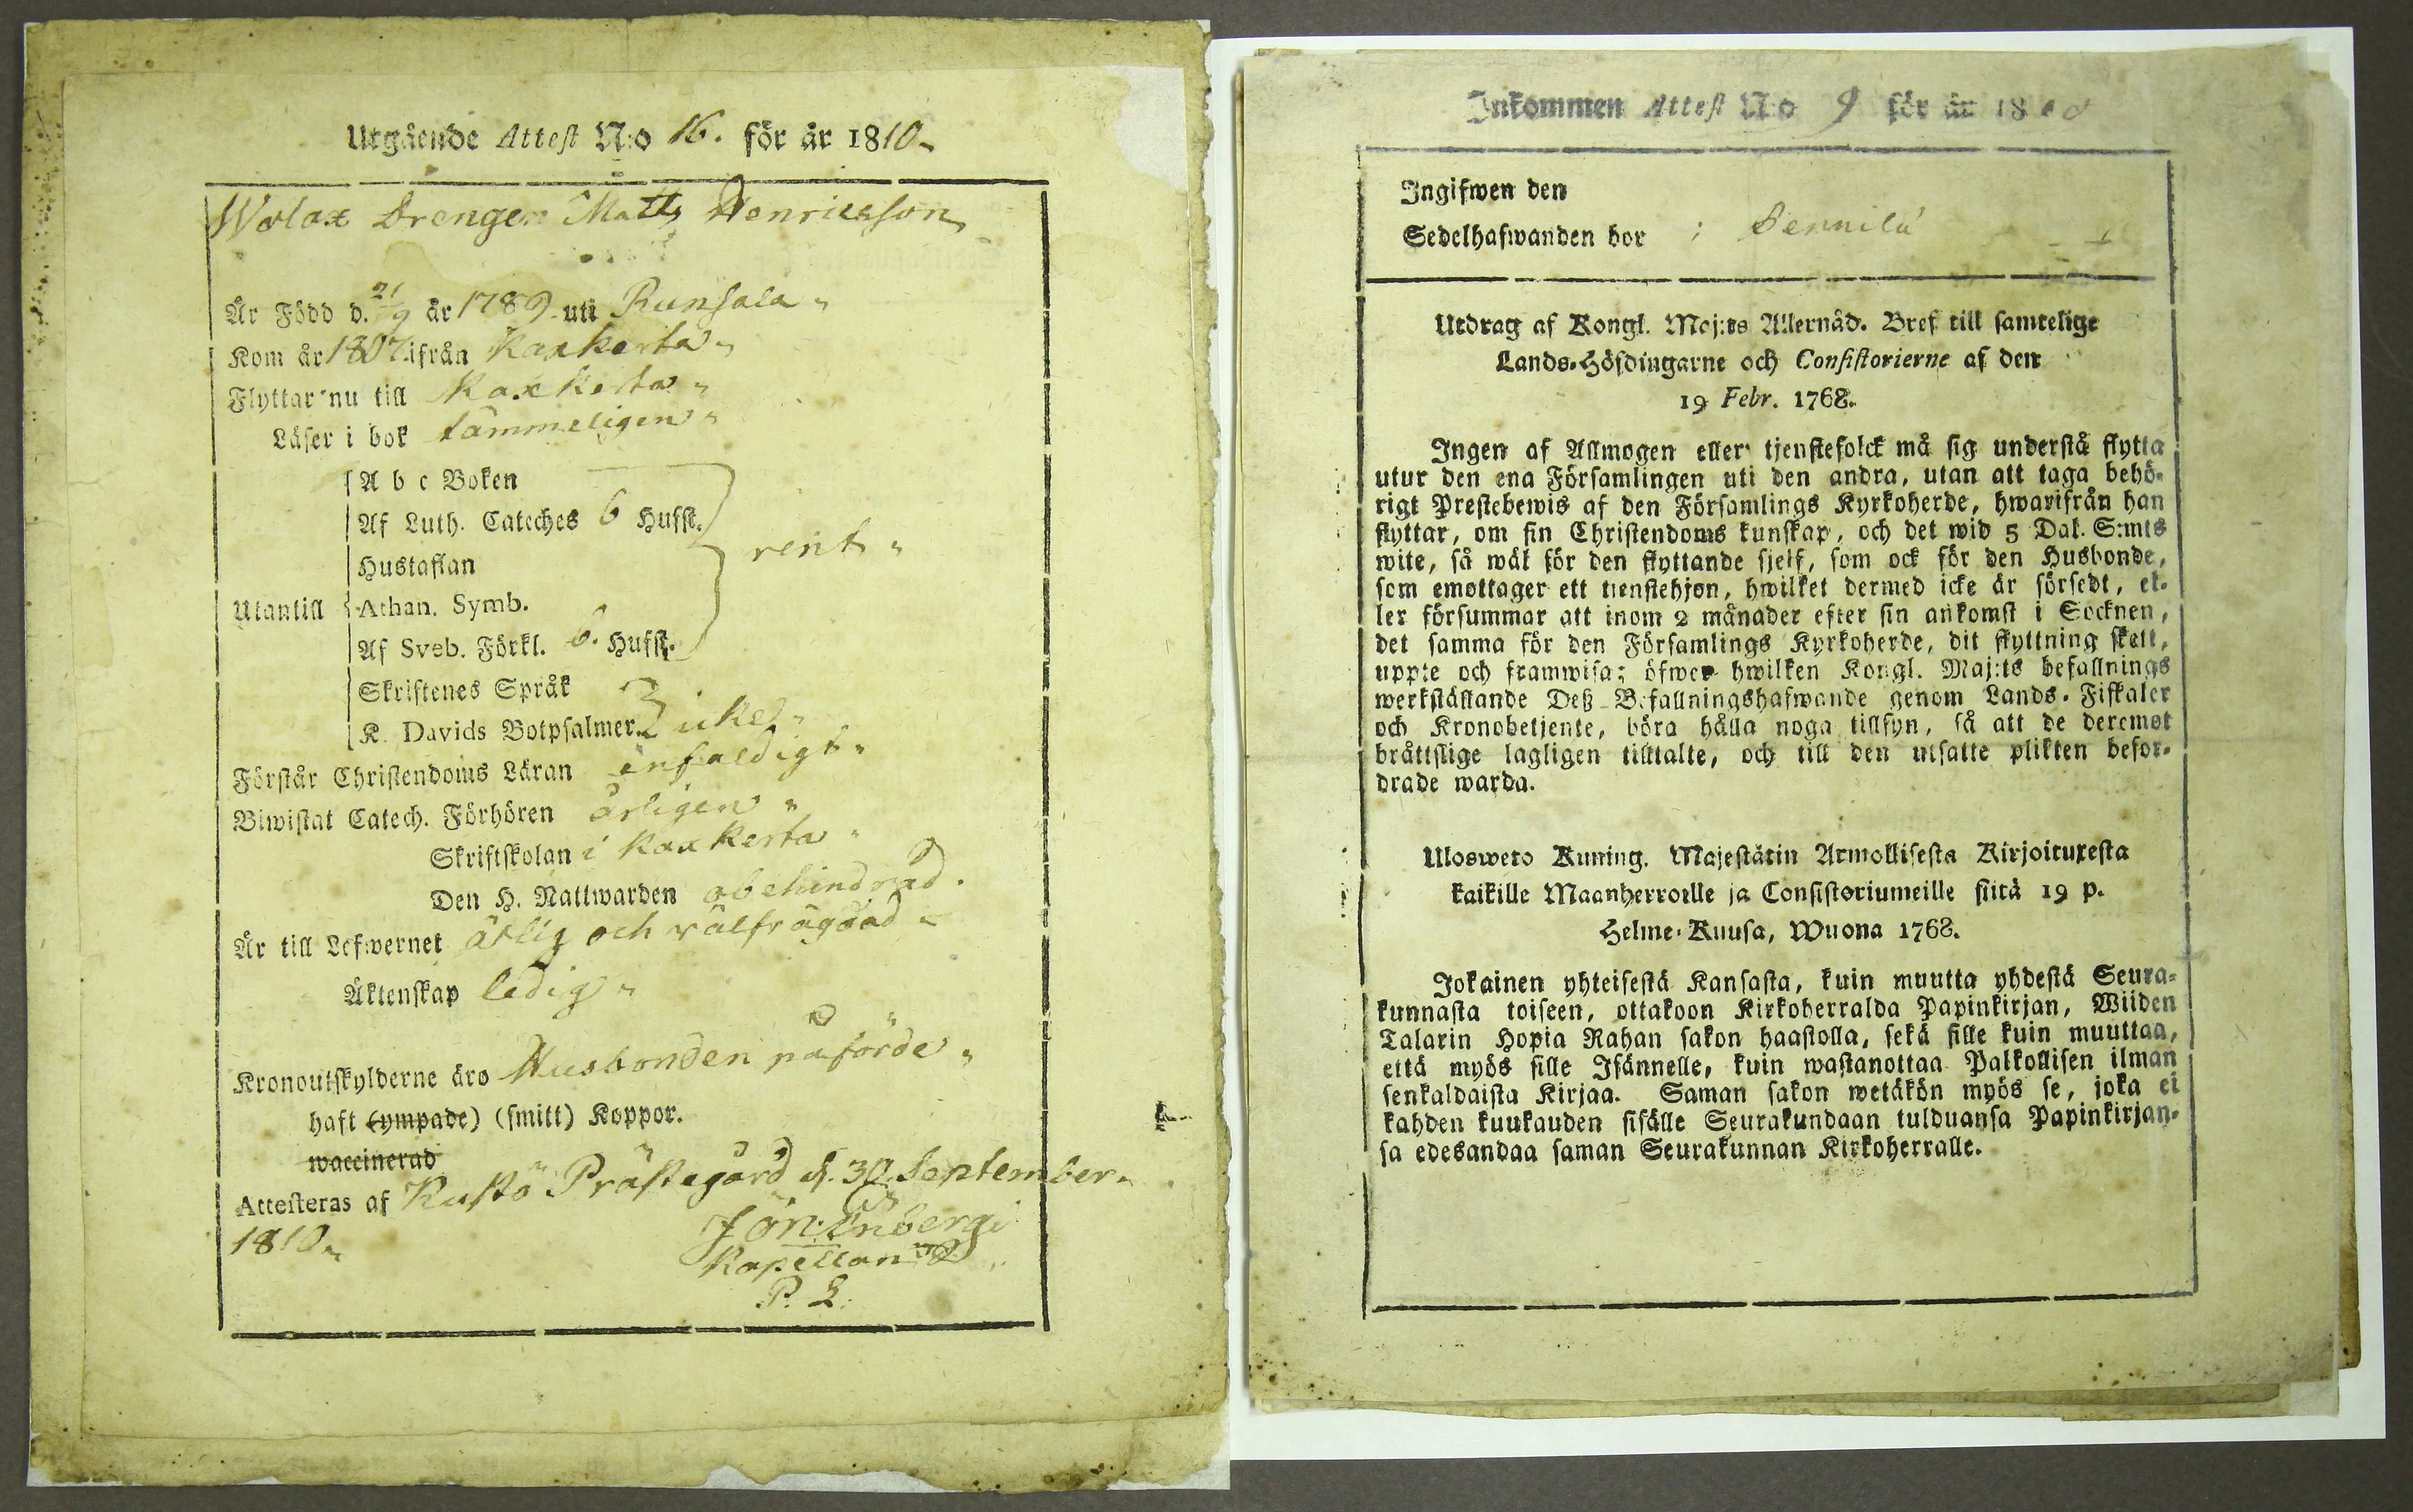 Utgående Attest N:o 16. för år 1810
Wolax Drengen Matts Henricsson
År Född d. 21/9 år 1789 uti Runsala
Kom år 1807 ifrån Kaxkerta
Flyttar nu till Kaxkerta
Läser i bok tämmeligen
A b c Boken
Af Luth. Cateches 6 Hufst.
Hustaflan
rent
Utantill Athan. Symb.
Af Sveb. Förkl. 6. Hufst.
Skriftenes Språk
K. Davids Botpsalmer icke
Förstår Christendoms Läran enfaldigt
Biwistat Catech. Förhören årligen
Skriftskolan i Kaxkerta
Den H. Nattwarden obehindrad.
Är till Lefwernet ärlig och välfrägdad
Äktenskap ledig
Kronoutskylderne äro Husbonden påförde
haft (ympade) (smitt) Koppor.
waccinerad
Attesteras af Kustö Prästegård d. 30 September
1810
Kapellan
P. L.
Inkommen Attest N:o 9 för år 18
Ingifwen den
Sedelhafwanden bor i
Utdrag af Kongl. Maj:ts Allernåd. Bref till samtelige
Lands-Höfdingarne och Consistorierne af den
19 Febr. 1768.
Ingen af Allmogen eller tjenstefolck må sig understå flytta
utur den ena Församlingen uti den andra, utan att taga behö-
rigt Prestebewis af den Församlings Kyrkoherde, hwarifrån han
flyttar, om sin Christendoms kunskap, och det wid 5 Dal. S:mts
wite, så wäl för den flyttande sjelf, som ock för den Husbonde,
som emottager ett tienstehjon, hwilket dermed icke är försedt, el-
ler försummar att inom 2 månader efter sin ankomst i Socknen,
det samma för den Församlings Kyrkoherde, dit flyttning skett,
uppte och framwisa; öfwer hwilken Kongl. Maj:ts befallnings
werkställande Deß Befallningshafwande genom Lands-Fiskaler
och Kronobetjente, böra hålla noga tillsyn, så att de deremot
bråttslige lagligen tilltalte, och till den utsatte plikten befor-
drade warda.
Ulosweto Kuning. Majestätin Armollisesta Kirjoituxesta
kaikille Maanherroille ja Consistoriumeille siitä 19 p.
Helme-Kuusa, Wuona 1768.
Jokainen yhteisestä Kansasta, kuin muutta yhdestä Seura-
kunnasta toiseen, ottakoon Kirkoherralda Papinkirjan, Wiiden
Talarin Hopia Rahan sakon haastolla, sekä sille kuin muuttaa,
että myös sille Isännelle, kuin wastanottaa Palkollisen ilman
senkaldaista Kirjaa. Saman sakon wetäkön myös se, joka ei
kahden kuukauden sisälle Seurakundaan tulduansa Papinkirjan-
sa edesandaa saman Seurakunnan Kirkoherralle.